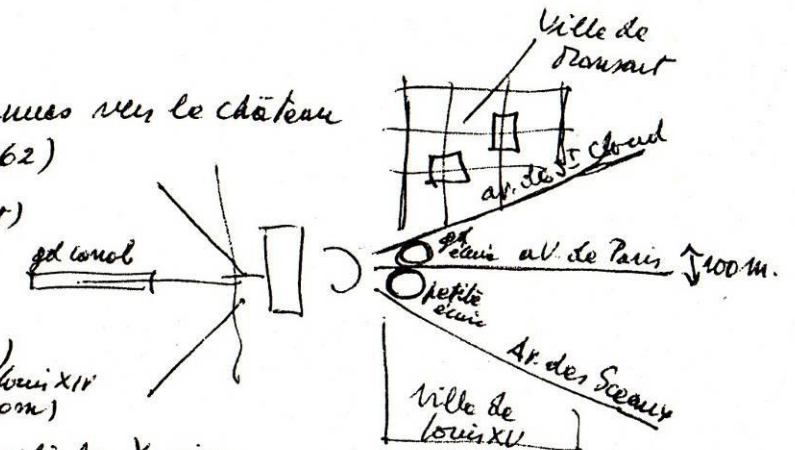 Ville de
Mansart
nues vers le château
62)
av. de St Cloud
gd canal
gde écurie
av. de Paris
100 m.
petite écurie
Louis XIV
Av. des Sceaux
Ville de
Louis XV